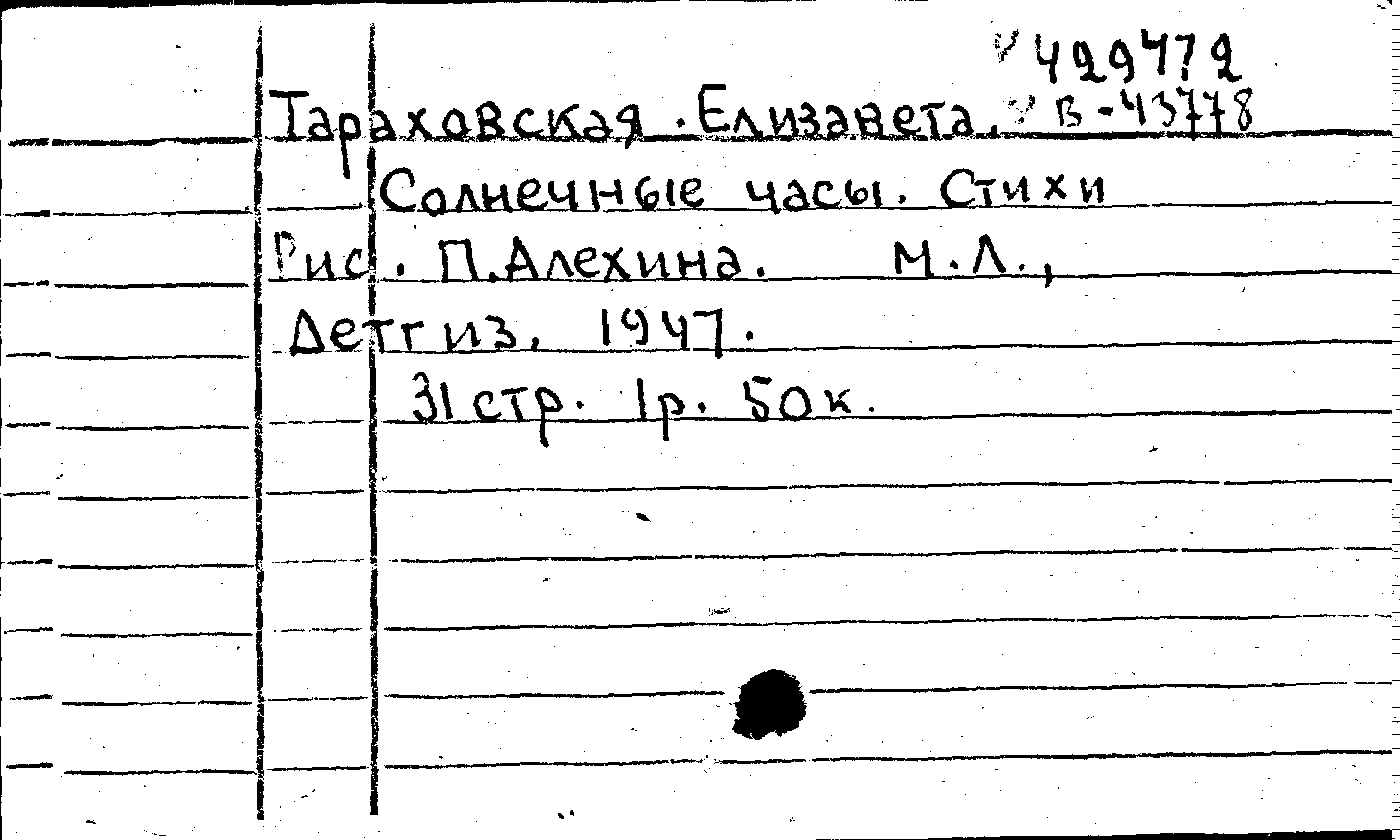 V 429472
Тараховская. Елизавета. V В-43778
Солнечные часы. Стихи
Рис. П. Алехина. М.Л.,
Детгиз. 1947.
31 стр. 1р. 50к.